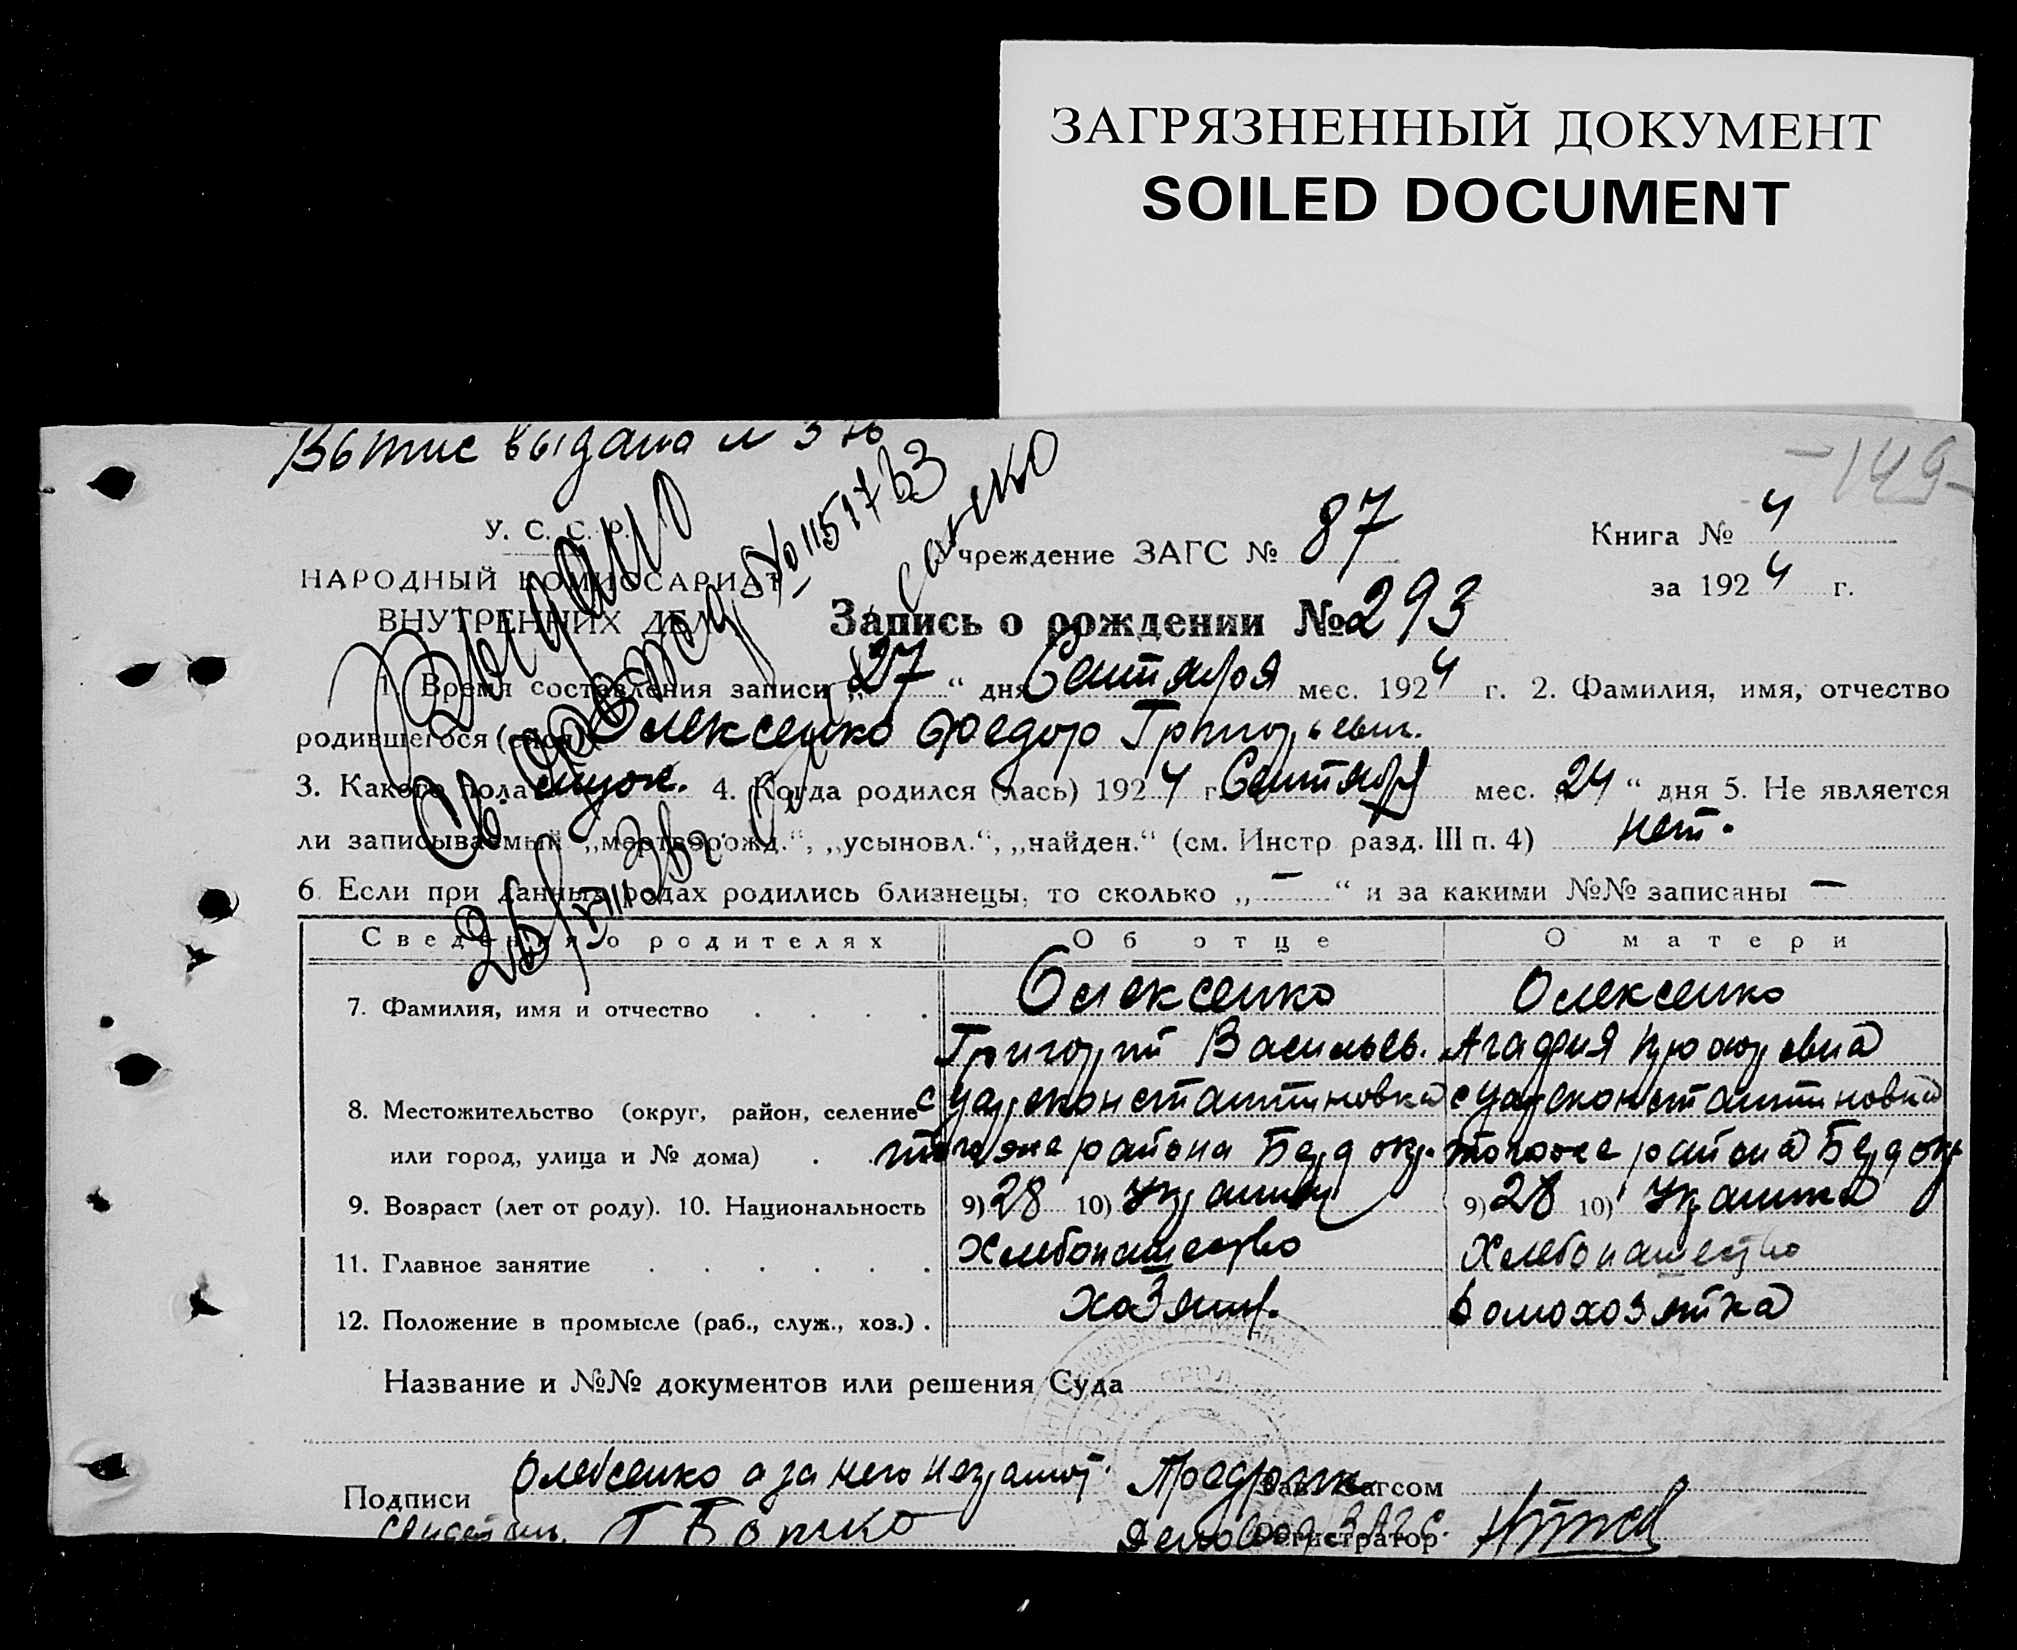 ЗАГРЯЗНЕННЫЙ ДОКУМЕНТ
SOILED DOCUMENT
выдано
-149-
У. С. С. Р.
НАРОДНЫЙ КОМИССАРИАТ
ВНУТРЕННИХ ДЕЛ
Выдано
№ 1151763
Учреждение ЗАГС № 87
Книга № 4
за 1924 г.
Запись о рождении № 293
1. Время составления записи „27“ дня Сентября мес. 1924 г. 2. Фамилия, имя, отчество
родившегося Олексенко Федор Григорьевич.
3. Какого пола 4. Когда родился (лась) 1924 г. Сентября мес. „24“ дня 5. Не является
ли записываемый „мертворожд.“, „усыновл.“, „найден.“ (см. Инстр разд. III п. 4) нет.
6. Если при данных родах родились близнецы, то сколько „—“ и за какими №№ записаны —
Сведения о родителях Об отце О матери
7. Фамилия, имя и отчество Олексенко Олексенко
Григорий Васильев. Агафия
8. Местожительство (округ, район, селение с Цареконстантиновка с Цареконстантиновка
или город, улица и № дома) того же района Берд окр. того же района Берд окр
9. Возраст (лет от роду). 10. Национальность 9) 28 10) Украинец 9) 28 10) Украинка
11. Главное занятие Хлебопашество Хлебопашество
12. Положение в промысле (раб., служ., хоз.) Хозяин. Домохозяйка
Название и №№ документов или решения Суда
Подписи Олексенко а за него неграмот. Зав. Загсом
Регистратор